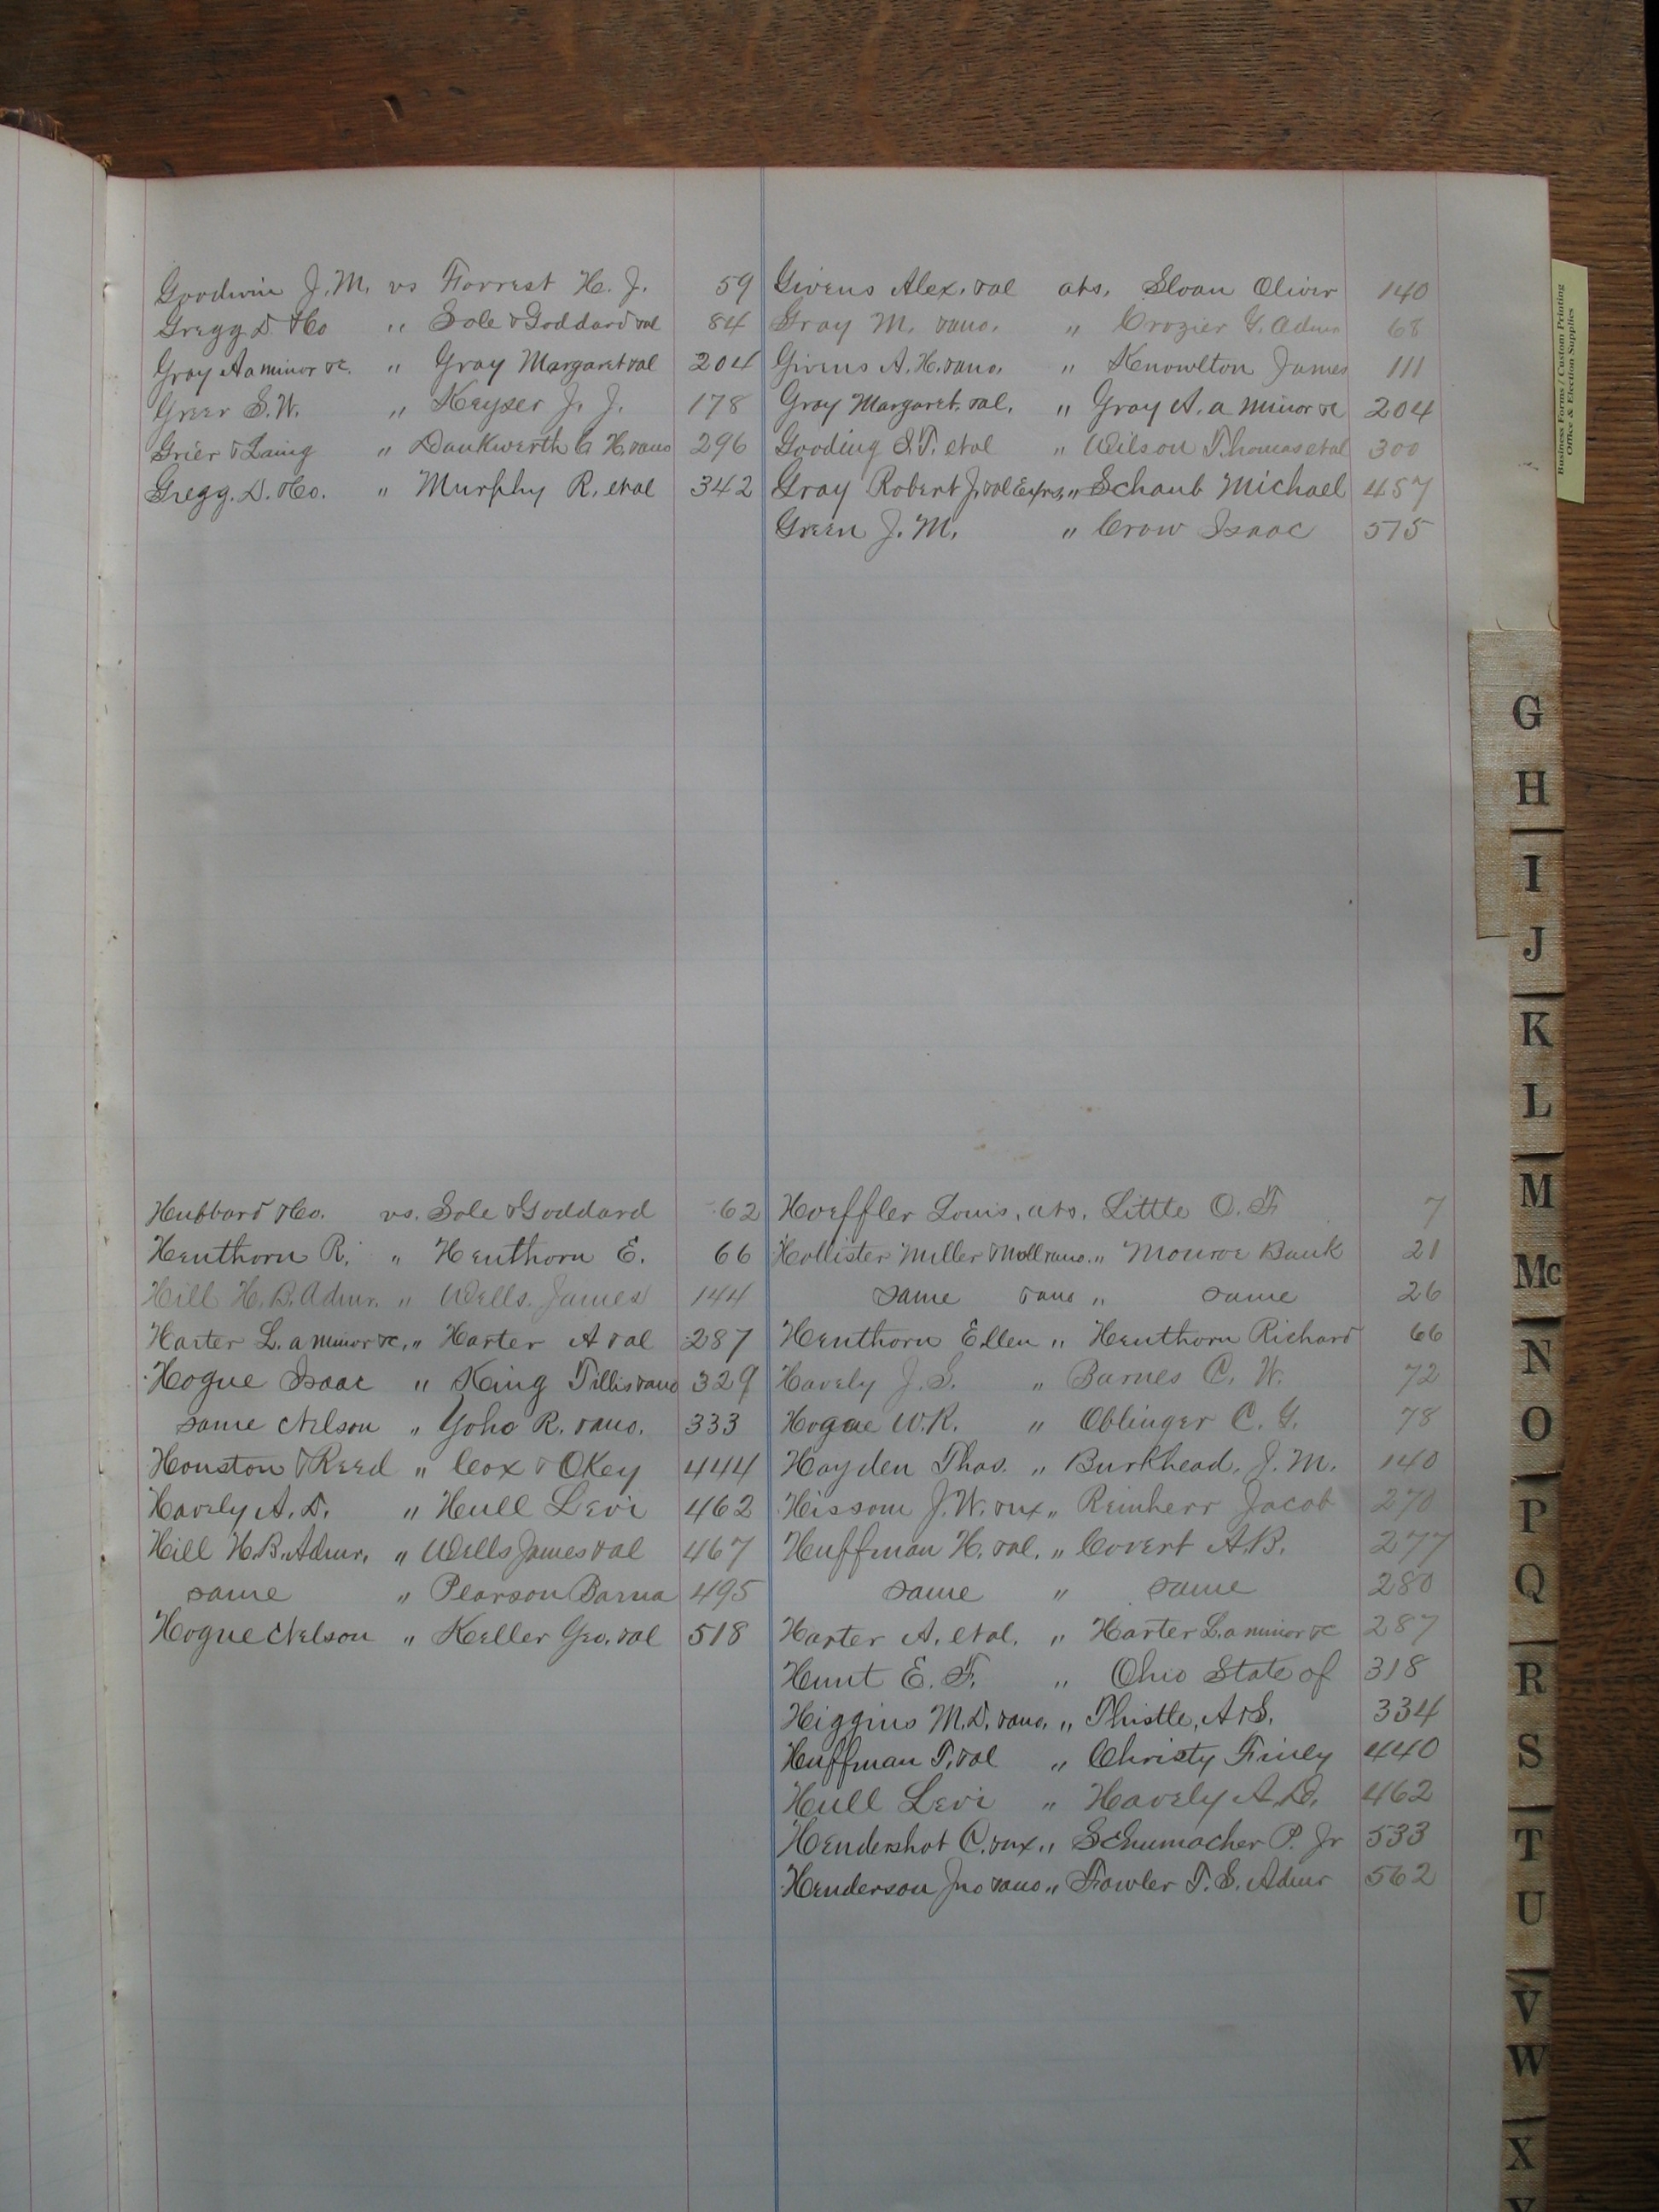 Goodwin J. M. vs Forrest H. J. 59
Gregg D. & Co " Sole & Goddard & al 84
Gray A a minor &c. " Gray Margaret & al 204
Greer S. W. " Keyser J. J. 178
Grier & Laing " Dankwerth C H. & ano 296
Gregg. D. & Co. " Murphy R. et al 342
Givens Alex. & al ats. Sloan Oliver 140
Gray M. & ano. " Crozier G. Admr 68
Givens A. H. & ano. " Knowlton James 111
Gray Margaret. & al. " Gray A. a minor &c 204
Gooding S. T. et al " Wilson Thomas et al 300
Gray Robert J. & al Exfrs, " Schaub Michael 457
Green J. M. " Crow Isaac 575
Hubbard & Co. vs. Sole & Goddard 62
Henthorn R. " Henthorn E. 66
Hill H. B. Admr. " Wells. James 144
Harter L. a minor &c, " Harter A & al 287
Hogue Isaac " King Tillis & ano 329
same Nelson " Yoho R. & ano. 333
Houston & Reed " Cox & Okey 444
Havely A. D. " Hull Levi 462
Hill H. B. Admr. " Wells James & al 467
same " Pearson Barna 495
Hogue Nelson " Keller Geo. & al 518
Hoeffler Louis, ats. Little O. F 7
Hollister Miller & Moll & ano. " Monroe Bank 21
same & ano " same 26
Henthorn Ellen " Henthorn Richard 66
Havely J. S. " Barnes C. W. 72
Hogue W. R. " Oblinger C. G. 78
Hayden Thos. " Burkhead, J. M. 140
Hissom J. W. & ux " Reinherr Jacob 270
Huffman H. & al. " Covert A. B. 277
same " same 280
Harter A. et al. " Harter L. a minor &c 287
Hunt E. F. " Ohio State of 318
Higgins M. D. & ano. " Thistle, A & S. 334
Huffman T. & al " Christy Finley 440
Hull Levi " Havely A. D. 462
Hendershot C. & ux " Schumacher P. Jr 533
Henderson Jno & ano " Fowler T. S. Admr 562
Business Forms / Custom Printing
Office & Election Supplies
G
H
I
J
K
L
M
Mc
N
O
P
Q
R
S
T
U
V
W
X